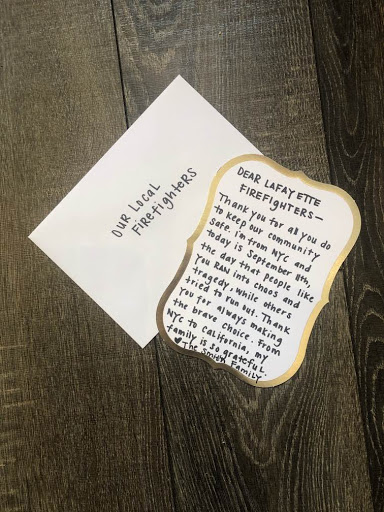 OUR LOCAL
Firefighters
DEAR LAFAYETTE
FIREFIGHTERS—
Thank you for all you do
to keep our community
safe. i'm from NYC and
today is September 11th,
the day that people like
you RAN into chaos and
tragedy, while others
tried to run out. Thank
you for always making
the brave choice. From
NYC to California, my
family is so grateful.
♥The Smith Family